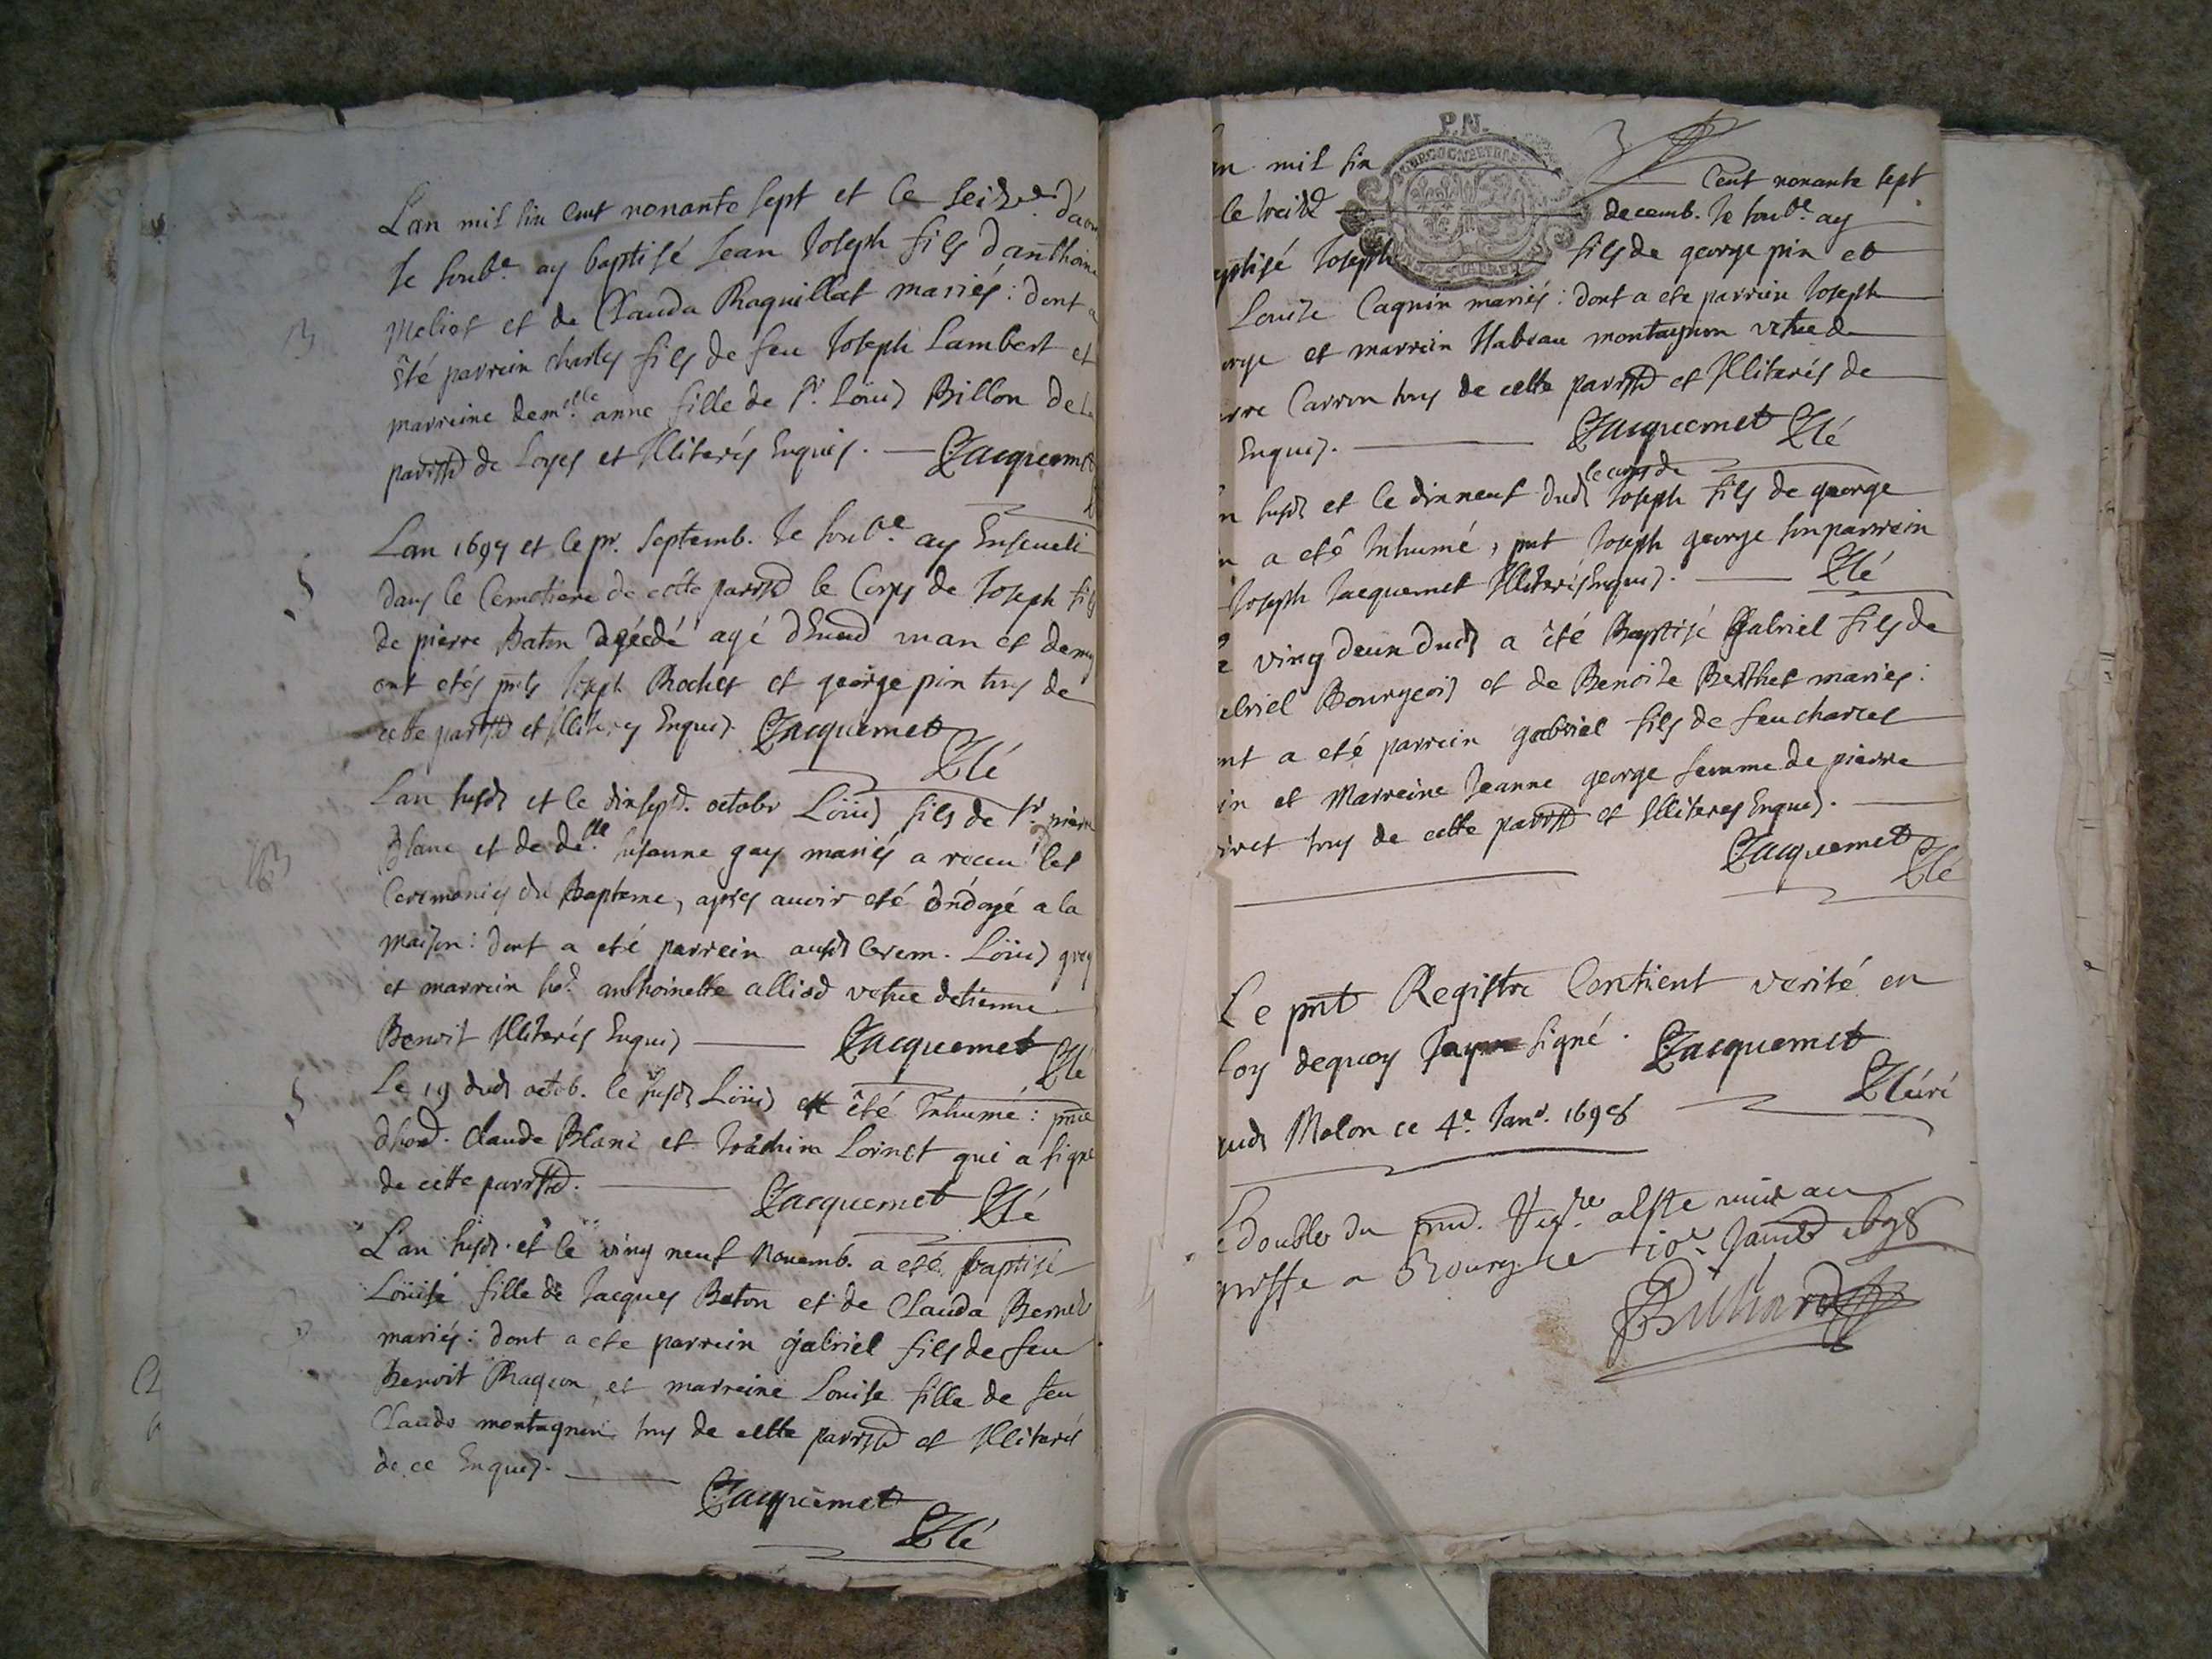 L'an mil six cent nonante sept et le seize d'avr
Je soub.e ay baptisé Jean Joseph fils d'anthoine
Meliot et de Clauda Raquillat mariés : dont a
été parrein charles fils de feu Joseph Lambert et
marreine dem.elle anne fille de Sr. Loüis Billon de La
parisse de Loyes et Illiterés Enquis. Jacquemet
L'an 1697 et le pr. Septemb. Je soub.e ay Enseueli
dans le Cemetiere de cette parisse le Corps de Joseph fils
de pierre Baton décedé agé d'un an et demy
ont etés pnts Joseph Rochet et george pin tous de
cette parisse et Illiterés Enquis. Jacquemet
Cé
L'an susd et le dix sept. octobr Loüis fils de Sr pierre
Blanc et de de.lle susanne gay mariés a receu les
Ceremonies du Bapteme, apres auoir eté ondoyé a la
maison : dont a eté parrein ausd Cerem. Loüis
et marrein ho.e anthoinette alliod vefue detienne
Benoit Illiterés Enquis Jacquemet
Cé
Le 19 dud octob. le susd Loüis a été Inhumé : pnce
d'hon. Claude Blanc et Joachim Lornet qui a signé
de cette parisse. Jacquemet Cé
L'an susd. et le ving neuf Nouemb. a eté baptisé
Loüise fille de Jacques Baton et de Clauda Bernet
mariés : dont a ete parrein gabriel fils de feu
Benoit Raquon et marreine Louise fille de feu
Claude montagnon tous de cette parisse et Illiterés
de ce Enquis.
Jacquemet
Cé
P.N.
an mil six Cent nonante sept
le treize decemb. Je soub.e ay
aptisé Joseph fils de george pin et
Louise Caquin mariés : dont a ete parrein Joseph
orge et marrein Habeau montagnon vefue de
erre Carron tous de cette parisse et Illiterés de
Enquis. Jacquemet Cé
le corps de
n susd et le dix neuf dud Joseph fils de george
n a eté Inhumé, pnt Joseph george son parrein
Joseph Jacquemet Illiterés Enquis. Cé
e ving deux dud a été Baptisé Gabriel fils de
abriel Bourgeois et de Benoite Berthet mariés :
nt a eté parrein gabriel fils de feu charles
in et Marreine Jeanne george femme de pierre
ivet tous de cette parisse et Illiteres Enquis.
Jacquemet
Cé
Le pnt Registre Contient verité en
foy dequoy Jay signé. Jacquemet
Curé
Molon ce 4.e Janv. 1698
e double du Reg.re aesté mis au
greffe a Bourg ce 10.e Janvr 1698